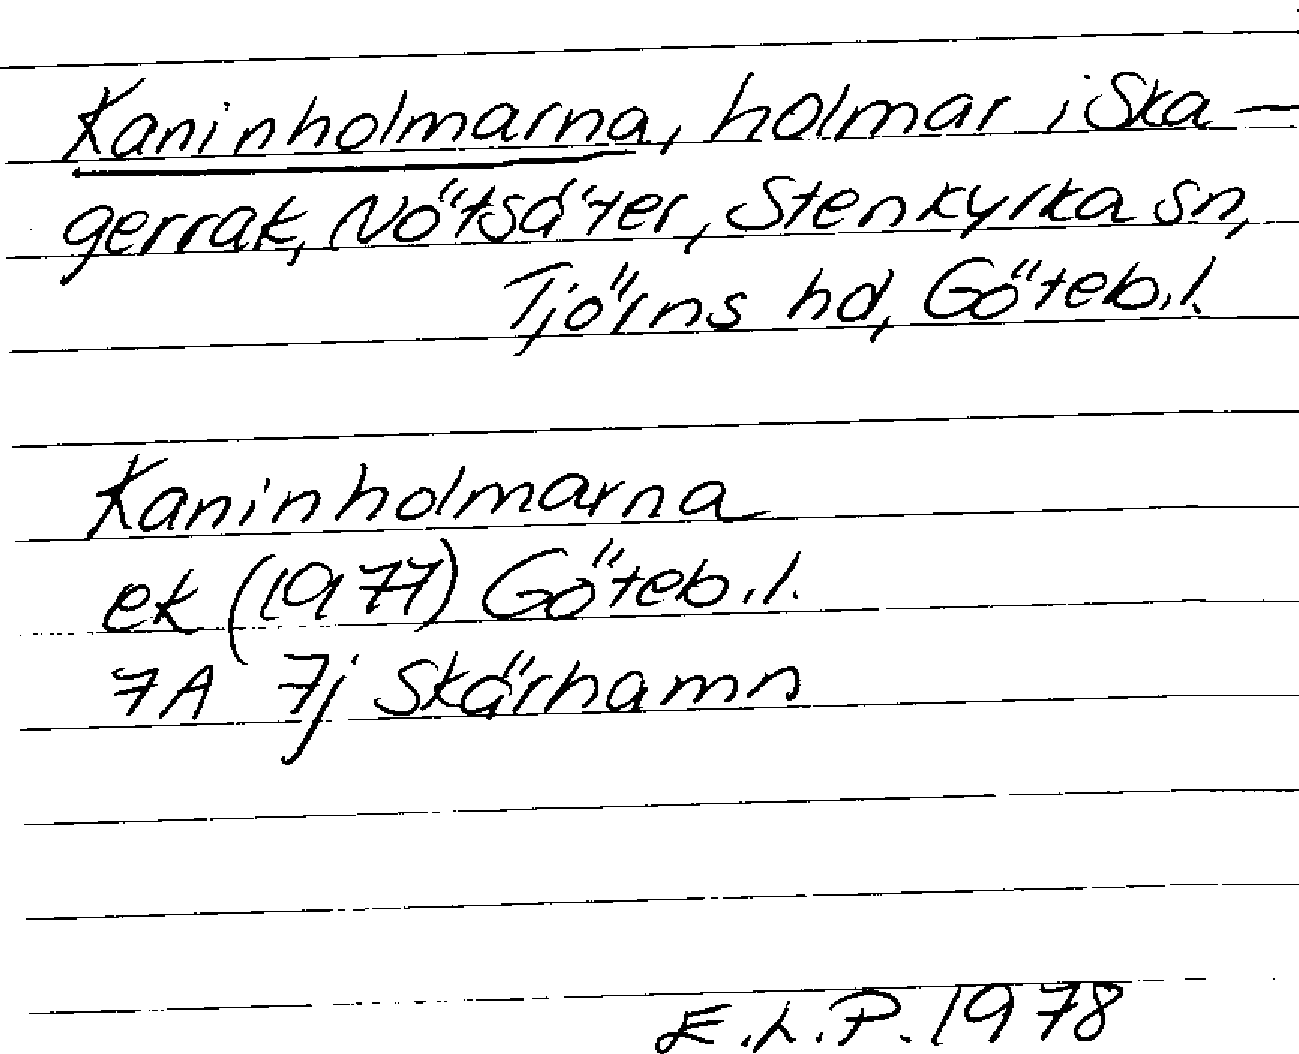 Kaninholmarna, holmar i Ska-
gerrak, Nötsäter, Stenkyrka sn,
Tjörns hd, Göteb.l.
Kaninholmarna
ek (1977) Göteb.l.
7A 7j Skärhamn
E.L.P. 1978